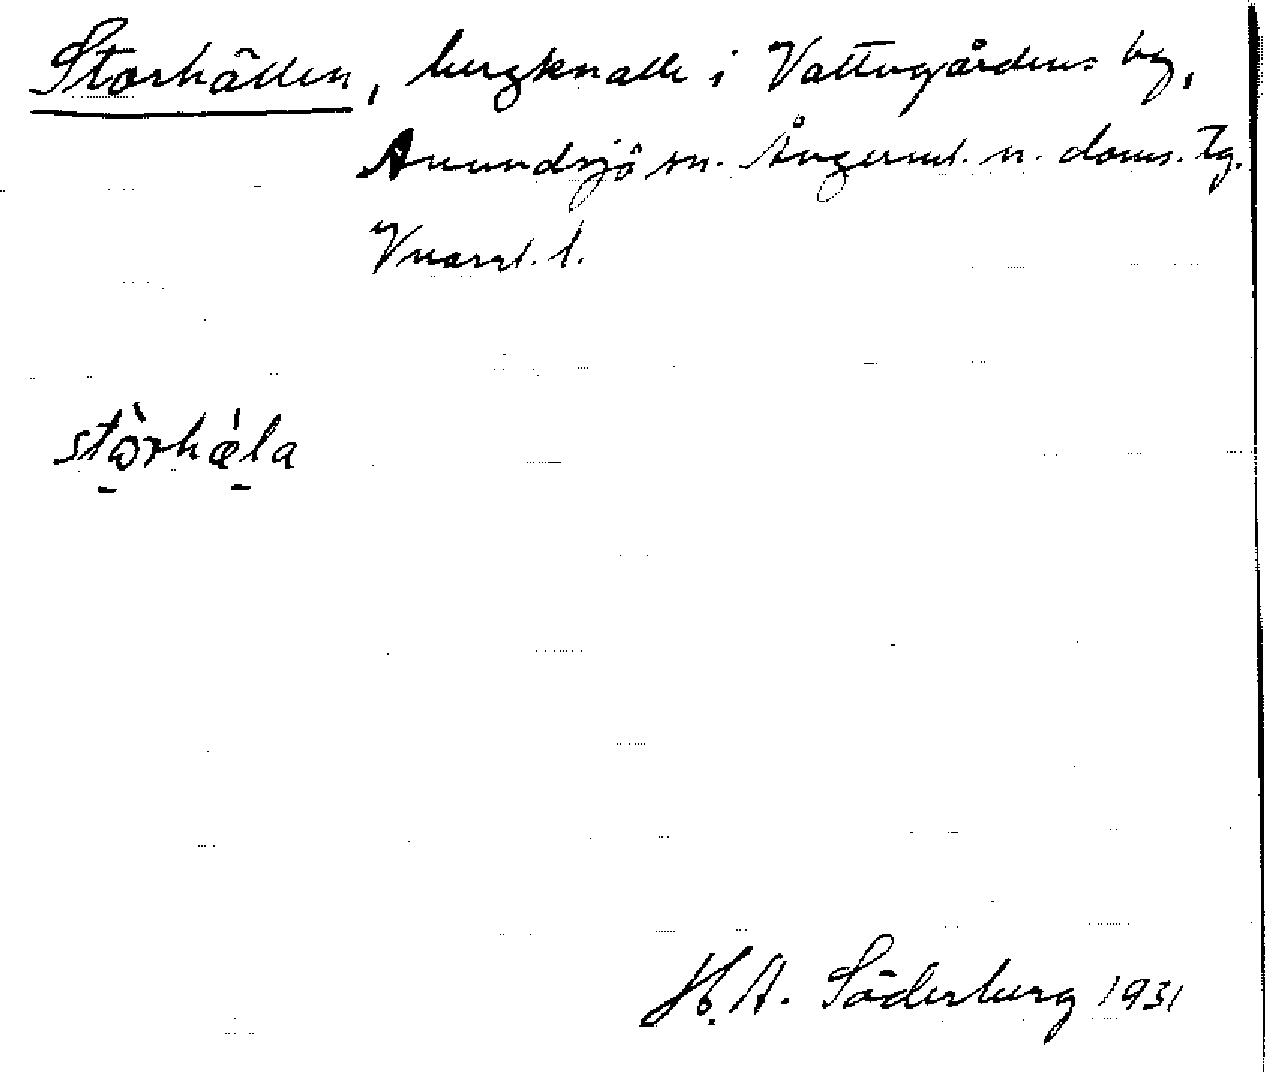 Storhällen, bergknalle i Vattugårdens by,
Anundsjö sn. Ångerml. n. doms. Tg.
Vnorrl. l.
stò̱rhǽ̱la
H. A. Söderberg 1931